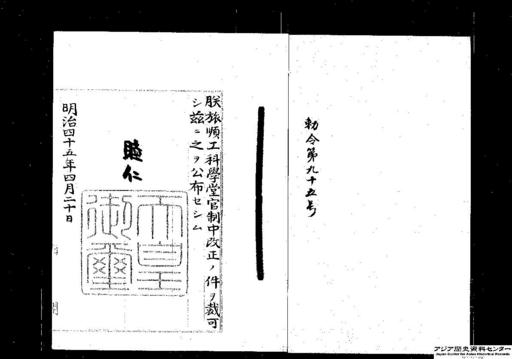 勅令第九十五号
朕旅順工科學堂官制中改正ノ件ヲ裁可
シ茲ニ之ヲ公布セシム
睦仁
天皇
御璽
明治四十五年四月二十日
アジア歴史資料センター
Japan Center for Asian Historical Records